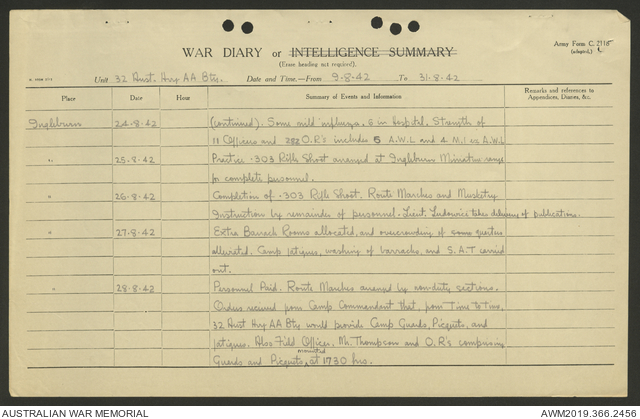 WAR DIARY or INTELLIGENCE SUMMARY
(Erase heading not required).
Army Form C. 2118
(adapted)
Unit 32 Aust. Hvy AA Bty. Date and Time—From 9-8-42 To 31-8-42
Place Date Hour Summary of Events and Information Remarks and references to Appendices, Diaries, &c.
Ingleburn 24-8-42 (continued). Some mild influenza, 6 in Hospital. Strength of
11 Officers and 282 O.R's includes 5 A.W.L and 4 M.I. ex A.W.L
" 25-8-42 Practice .303 Rifle Shoot arranged at Ingleburn Miniature range
for complete personnel.
" 26-8-42 Completion of .303 Rifle Shoot. Route Marches and Musketry
Instruction by remainder of personnel. Lieut. Ludowici takes delivery of publications.
" 27-8-42 Extra Barrack Rooms allocated, and overcrowding of some quarters
alleviated. Camp fatigues, washing of barracks, and S.A.T carried
out.
" 28-8-42 Personnel Paid. Route Marches arranged by non-duty sections.
Orders received from Camp Commandant that, from Time to Time,
32 Aust Hvy AA Bty would provide Camp Guards, Picquets, and
fatigues. Also Field Officer, Mr. Thompson and O.R's comprising
Guards and Picquets, mounted at 1730 hrs.
AUSTRALIAN WAR MEMORIAL
AWM2019.366.2456